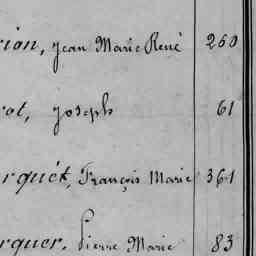 rion, Jean Marie René 260
rot, Joseph 61
rquét, François Marie 361
rquer, Pierre Marie 83